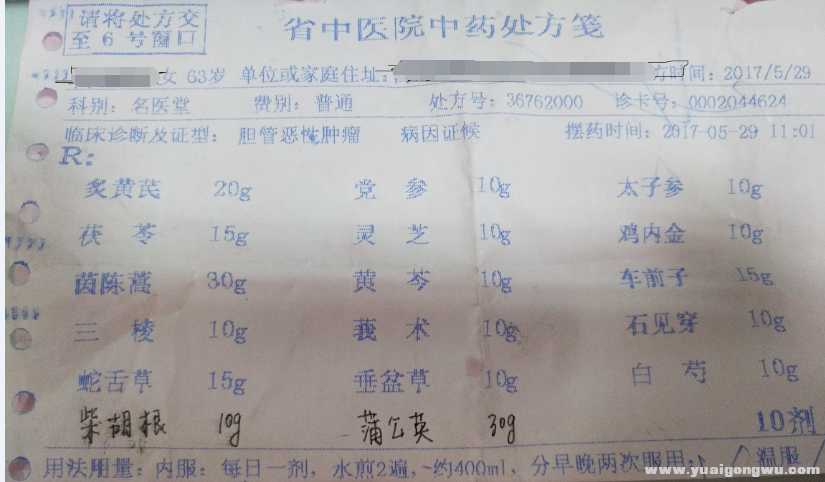 请将处方交
至 6 号窗口
省中医院中药处方笺
女 63岁 单位或家庭住址: 方时间: 2017/5/29
科别: 名医堂 费别: 普通 处方号: 36762000 诊卡号: 0002044624
临床诊断及证型: 胆管恶性肿瘤 病因证候 摆药时间: 2017-05-29 11:01
R:
炙黄芪 20g 党 参 10g 太子参 10g
茯 苓 15g 灵 芝 10g 鸡内金 10g
茵陈蒿 30g 黄 芩 10g 车前子 15g
三 棱 10g 莪 术 10g 石见穿 10g
蛇舌草 15g 垂盆草 10g 白 芍 10g
柴胡根 10g 蒲公英 30g 10剂
用法用量: 内服: 每日一剂, 水煎2遍, 约400ml, 分早晚两次服用: 温服
www.yuaigongwu.com